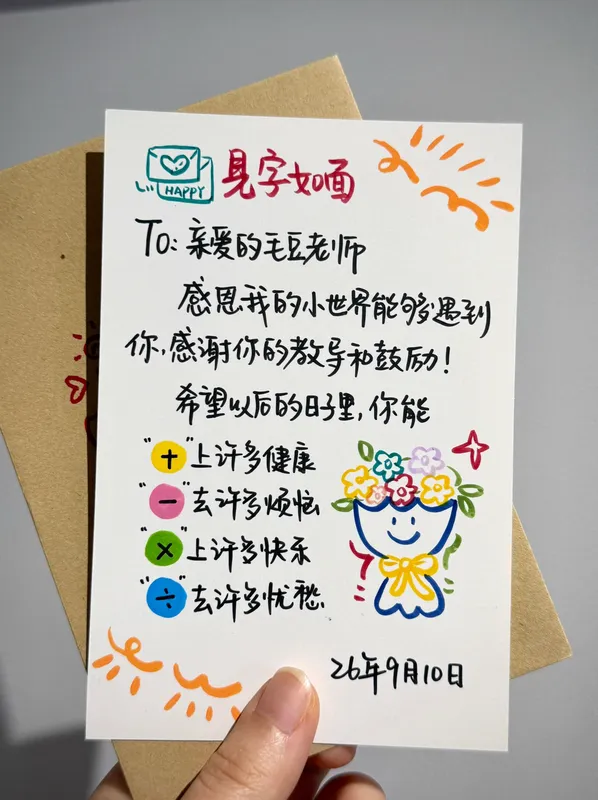 HAPPY
见字如面
To: 亲爱的毛豆老师
感恩我的小世界能够遇到
你,感谢你的教导和鼓励!
希望以后的日子里,你能
"+"上许多健康
"-"去许多烦恼
"×"上许多快乐
"÷"去许多忧愁
26年9月10日